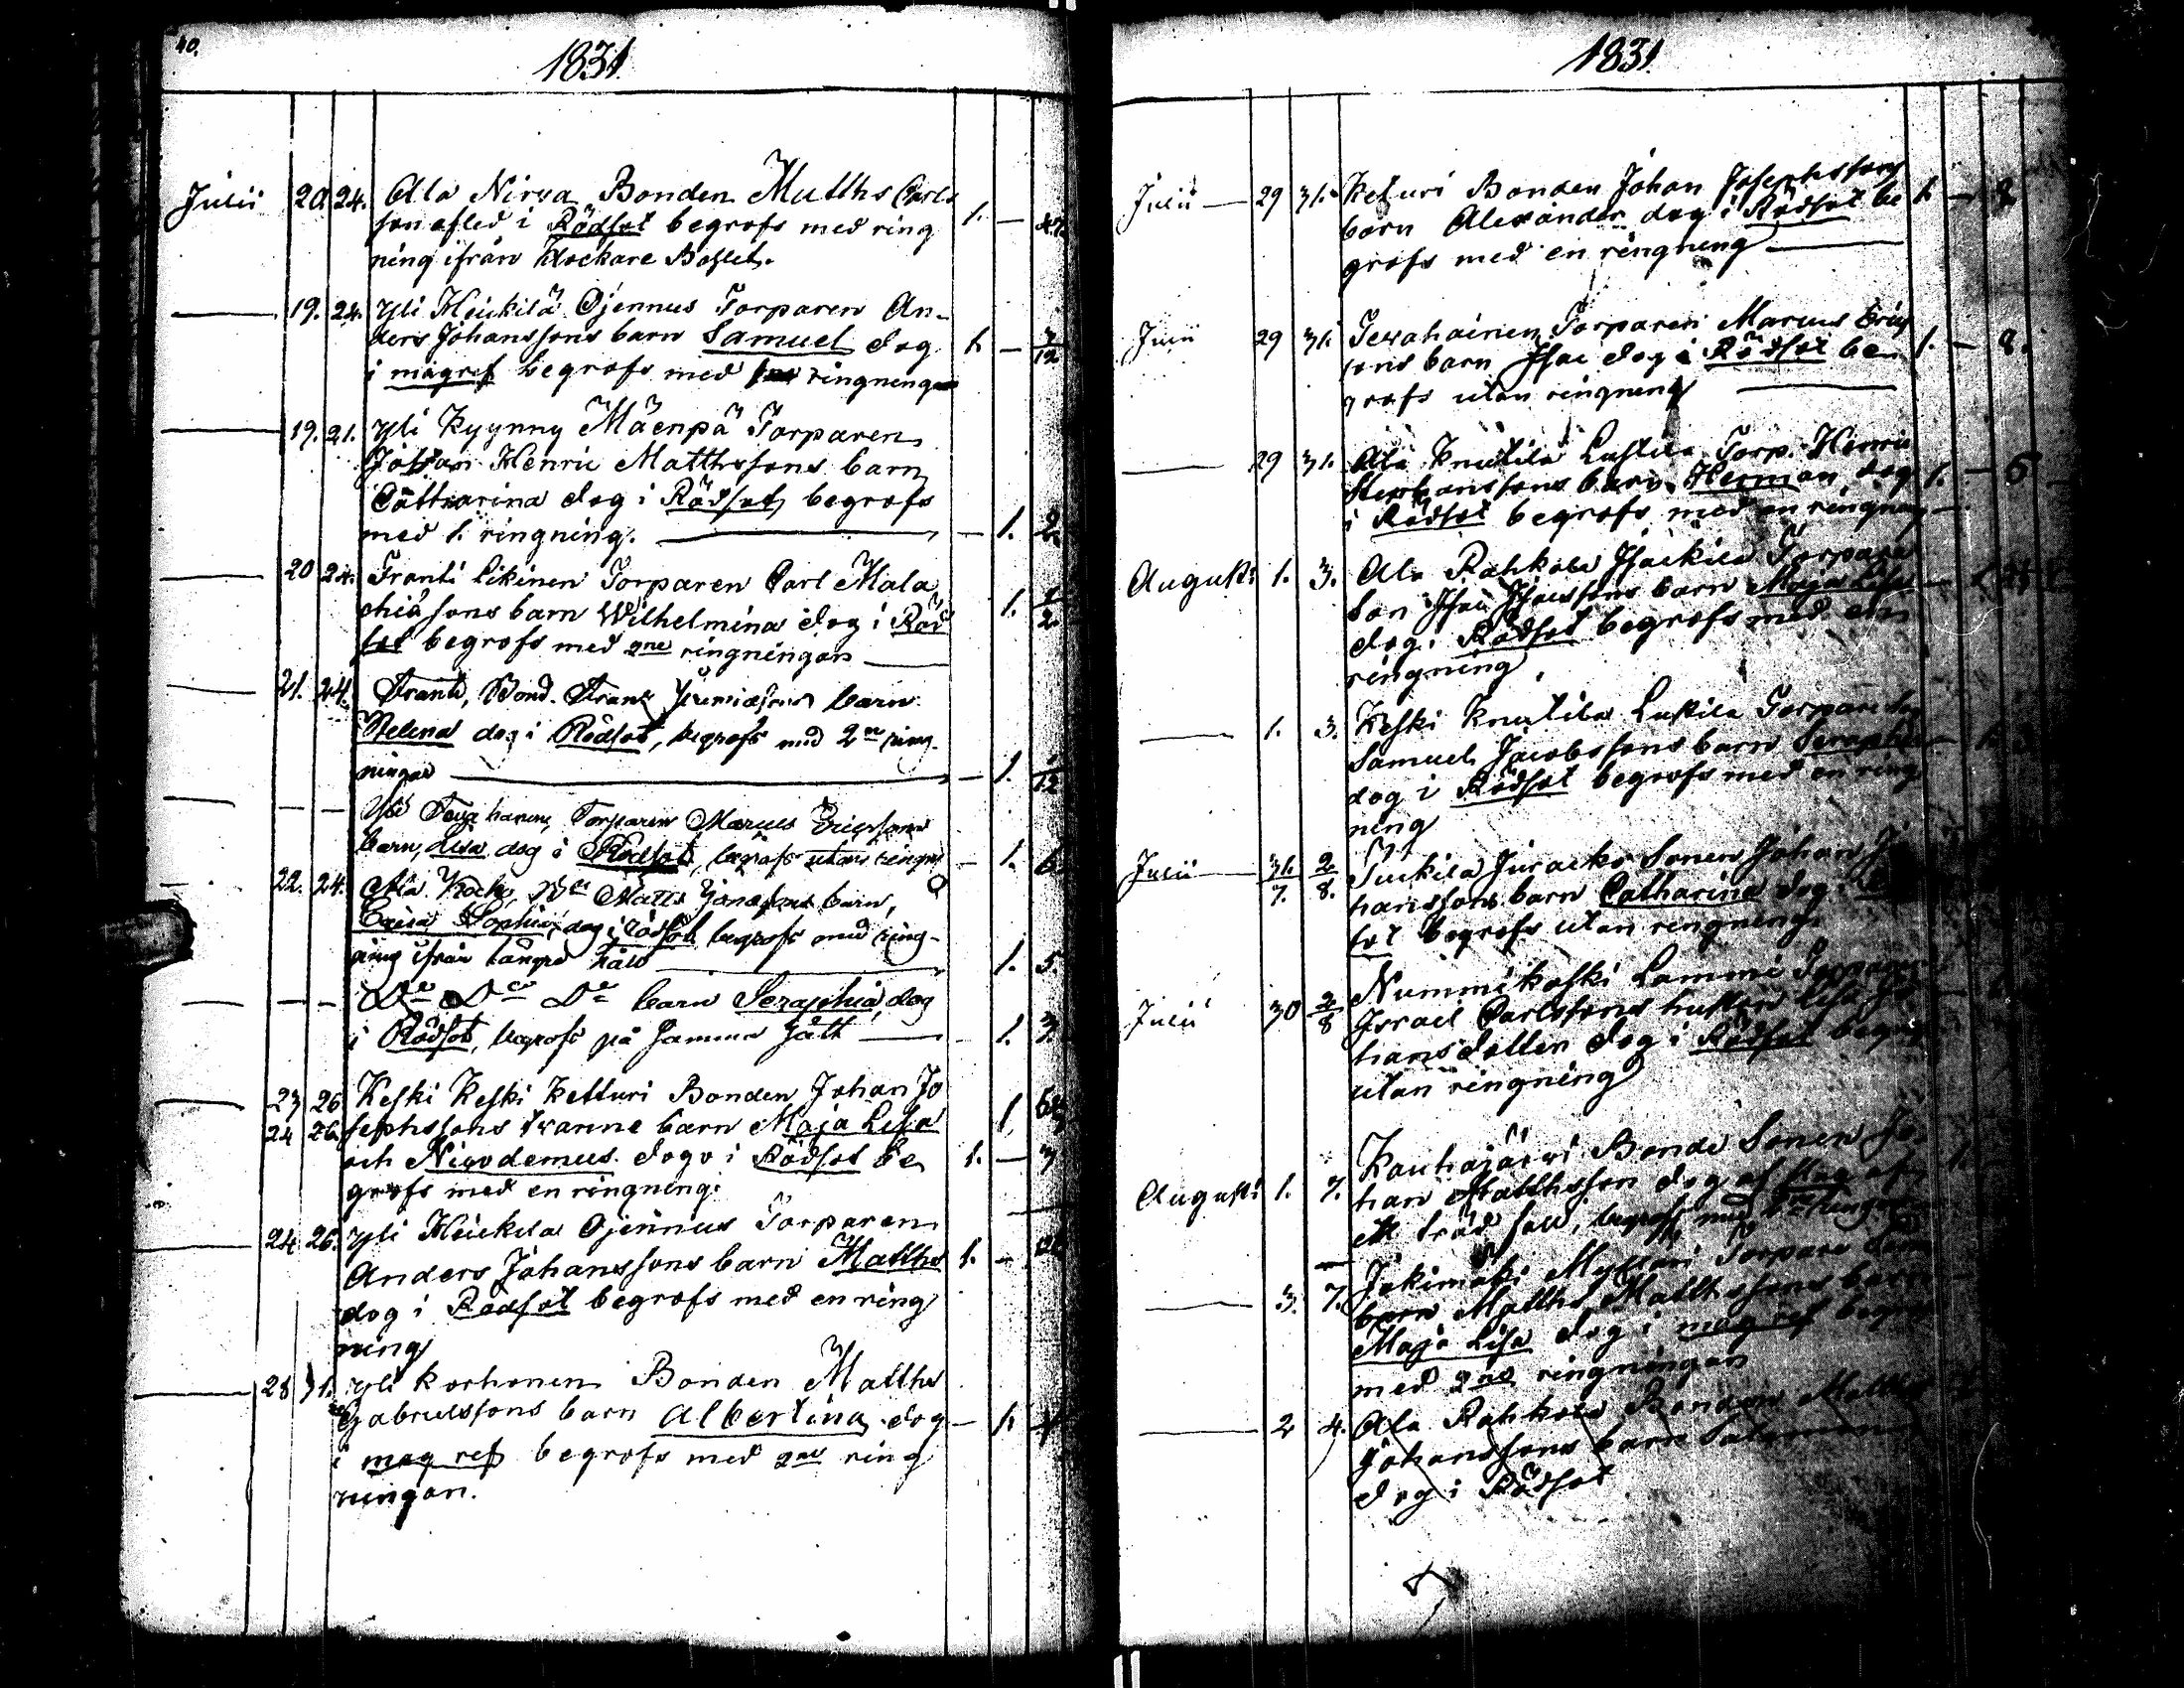 40.
1831.
Julii 20. 24. Ala Nirva Bonden Matths Carls
son afled i Rödsot begrofs med ring 1. — 47.
ning ifrån Klockare Bohlet.
19. 24. Yli Heickilä Ojennus Torparen An-
ders Johanssons barn Samuel dog 1. — 3/12
i magref begrofs med ringningar
19. 21. Yli Kyynny Mäenpä Torparen
Johan Henric Matthssons barn
Catharina dog i Rödsot begrofs
med 1. ringning. — 1. 2.
20 24. Franti Likinen Torparen Carl Mala
chiæsons barn Wilhelmina dog i Röd 1. 1/2
sot begrofs med 2ne ringningar
21. 24. Franti, Bond. Frans Jeremiæsons barn
Helena dog i Rödsot, begrofs med 2ne ring-
ningar — 1. /12
Torparen Marcus Ericssons
barn, Lisa dog i Rödsot, begrofs utan ringn — 1. 6
22. 24. Ala Koski, Matts barn,
Sophia, dog i rödsot begrofs med ring-
ning ifrån längre håll 1. 5
Do Do Do barn Seraphia, dog
i Rödsot, begrofs på samma sätt — 1. 3
23 26 Keski Keski Ketturi Bonden Johan Jo
24 26 sephssons tvänne barn Maja Lisa 1.
och Nicodemus dogo i Rödsot be 1. — 3
grofs med en ringning.
24 26. Yli Heickilä Ojennus Torparen
Anders Johanssons barn Matths 1. —
dog i Rödsot begrofs med en ring
ning
28 31. Yli Korhonen Bonden Matths
Gabrielssons barn Albertina dog — 1.
i mag ref begrofs med 2ne ring
ningar.
1831.
Julii — 29 31. Keturi Bonden Johan Josephssons
barn Alexander dog i Rödsot be 1. — 2
grofs med en ringning
Julii 29 31. Torparen Marcus Eric
sons barn Isac dog i Rödsot be 1. — 2.
grofs utan ringning
29 31. Ala Knutila Lustila Torp. Henric
Stephanssons barn Herman dog 1. — 5
i Rödsot begrofs med en ringning
Augusti 1. 3. Ala Rahkola Isackila Torpare
Son Isac Isacssons barn Maja Lisa
dog i Rödsot begrofs med en
ringning
1. 3. Keski Knutila Lustila Torpare Son
Samuel Jacobssons barn Seraphia
dog i Rödsot begrofs med en ring
ning
Julii 31./7. 2/8. Juracko Sonen Johan Jo
hanssons barn Catharina dog i
sot begrofs utan ringning.
Julii 30 2/8 Nummikoski Lammi Torparen
Israel Carlssons hustru Lisa Jo
hansdotter dog i Rödsot begrofs
utan ringning
Augusti 1. 7. Kauhajärvi Bonde Sonen Jo
han Matthsson dog af slag af
ett träd fall, begrofs med
3. 7. Jokimäki Myllari Torpare
barn Matths Matthssons barn
Maja Lisa dog i mag ref begrofs
med 2ne ringningar
2 4. Ala Rahkola Bonden Matths
Johanssons barn Salomon
dog i Rödsot